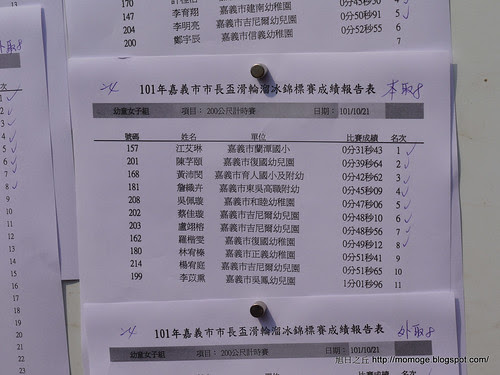 外取8
170 0分45秒30 4
147 李育翔 嘉義市建南幼稚園 0分50秒91 5
204 李明亮 嘉義市吉尼爾幼兒園 0分52秒55 6
200 鄭宇辰 嘉義市信義幼稚園 7
101年嘉義市市長盃滑輪溜冰錦標賽成績報告表 本取8
幼童女子組 項目: 200公尺計時賽 日期: 101/10/21
號碼 姓名 單位 比賽成績 名次
157 江艾琳 嘉義市蘭潭國小 0分31秒43 1
201 陳芓頤 嘉義市復國幼兒園 0分39秒64 2
168 黃沛閔 嘉義市育人國小及附幼 0分42秒62 3
181 詹織卉 嘉義市東吳高職附幼 0分45秒09 4
208 吳佩璇 嘉義市和睦幼稚園 0分47秒06 5
202 蔡佳璇 嘉義市吉尼爾幼兒園 0分48秒10 6
203 盧翊榕 嘉義市吉尼爾幼兒園 0分48秒56 7
162 羅楷雯 嘉義市復國幼兒園 0分49秒12 8
180 林宥榛 嘉義市正義幼稚園 0分51秒41 9
214 楊宥庭 嘉義市吉尼爾幼兒園 0分51秒65 10
199 李苡熏 嘉義市吳鳳幼兒園 1分01秒96 11
101年嘉義市市長盃滑輪溜冰錦標賽成績報告表 外取8
幼童女子組 項目: 200公尺計時賽 日期: 101/10/21
旭日之丘 http://momoge.blogspot.com/